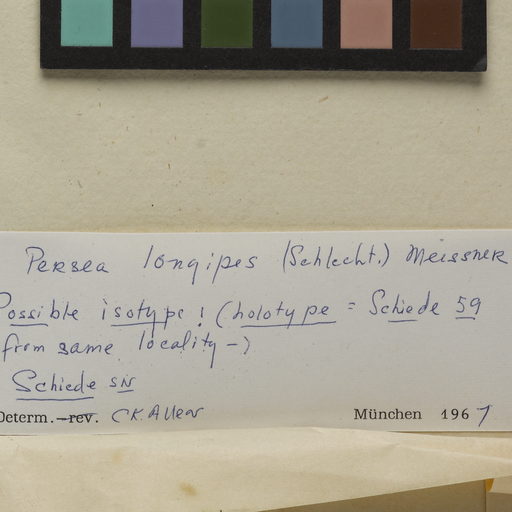 Persea longipes (Schlecht.) Meissner
Possible isotype! (holotype = Schiede 59
from same locality -)
Schiede SN
Determ.-rev. CK. Allen München 1967